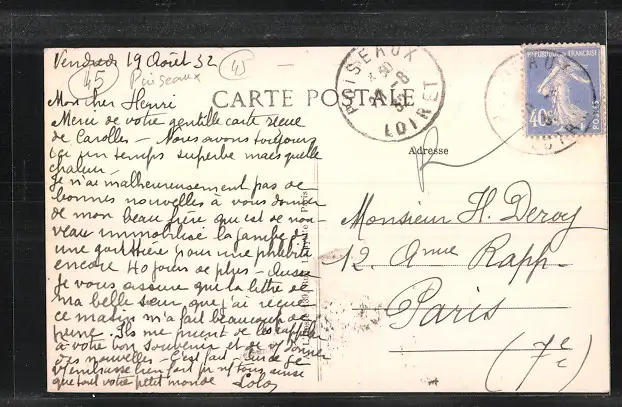 Vendredi 19 Août 32
45
Puiseaux
45
Mon cher Henri
Merci de votre gentille carte
de Carolles – Nous avons toujours
ici un temps superbe mais quelle
chaleur –
Je n'ai malheureusement pas de
bonnes nouvelles à vous donner
de mon beau frère qui est de nou-
veau immobilisé la jambe dans
une gouttière pour une phlébite
encore 40 jours de plus – Aussi
je vous assure que la lettre de
ma belle sœur que j'ai reçue
ce matin m'a fait beaucoup de
peine. Ils me prient de les rappeler
à votre bon souvenir et de vs donner
des nouvelles – C'est fait – Je
vs embrasse bien fort pr ns tous ainsi
que tout votre petit monde
Lolo
CARTE POSTALE
Adresse
PUISEAUX
LOIRET
RÉPUBLIQUE FRANÇAISE
40c
POSTES
Monsieur H. Deroy
12. Avnue Rapp –
Paris
(7e)